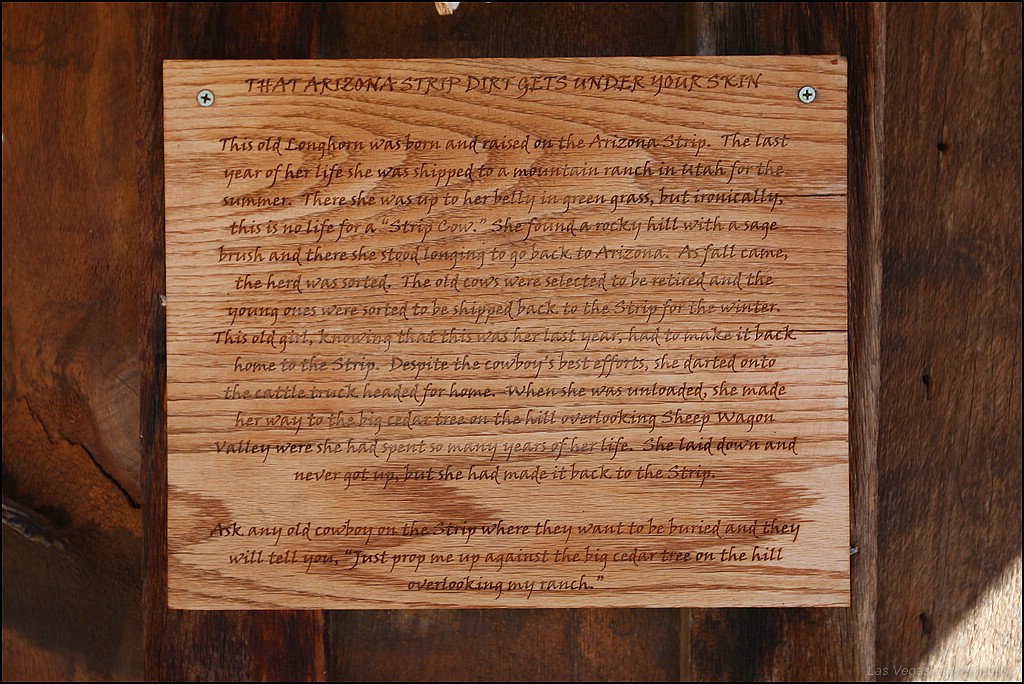 THAT ARIZONA STRIP DIRT GETS UNDER YOUR SKIN
This old Longhorn was born and raised on the Arizona Strip. The last
year of her life she was shipped to a mountain ranch in Utah for the
summer. There she was up to her belly in green grass, but ironically,
this is no life for a "Strip Cow." She found a rocky hill with a sage
brush and there she stood longing to go back to Arizona. As fall came,
the herd was sorted. The old cows were selected to be retired and the
young ones were sorted to be shipped back to the Strip for the winter.
This old girl, knowing that this was her last year, had to make it back
home to the Strip. Despite the cowboy's best efforts, she darted onto
the cattle truck headed for home. When she was unloaded, she made
her way to the big cedar tree on the hill overlooking Sheep Wagon
Valley were she had spent so many years of her life. She laid down and
never got up, but she had made it back to the Strip.
Ask any old cowboy on the Strip where they want to be buried and they
will tell you, "Just prop me up against the big cedar tree on the hill
overlooking my ranch."
Las Vegas